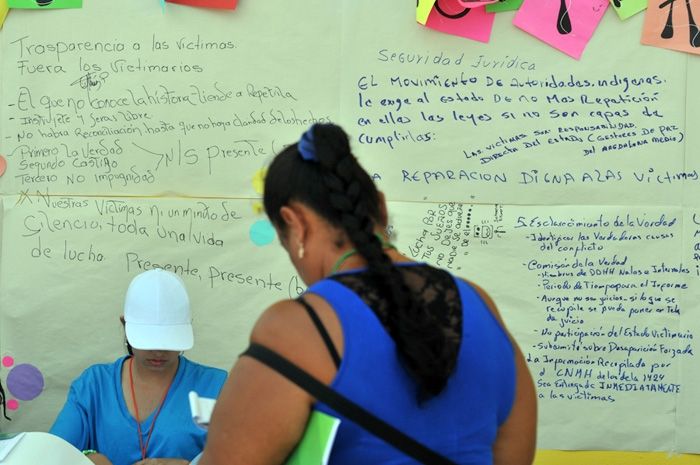 Trasparencia a las víctimas.
Fuera los Victimarios
- El que no conoce la historia tiende a Repetirla
- Instruyete y seras libre
- No habra Reconciliación hasta que no haya claridad de los hechos
- Primero la Verdad
Segundo Castigo
Tercero NO impugnidad
N/S Presente
X Nuestras Víctimas ni un minuto de
Silencio, toda una vida
de lucha. Presente, Presente
Seguridad Jurídica
EL MOVIMIENTO DE Autoridades indígenas.
le exige al ESTADO DE NO MAS Repetición
en ellas las leyes si no son capas de
cumplirlas:
LAS VICTIMAS SON RESPONSABILIDAD
DIRECTA DEL ESTADO (GESTORES DE PAZ
DEL MAGDALENA MEDIO)
REPARACION DIGNA A LAS Víctimas
Lucha POR
5. Esclarecimiento de la Verdad
- Identificar las Verdaderas causas
del conflicto
- Comisión de la Verdad
- Miembros de DDHH Nales e Internales
- Periodo de Tiempo para el Informe
- Aunque no sea juicios si lo que se
recopile se pueda poner en tela
de juicio
- No participación del Estado Victimario
- Subcomite sobre Desaparición Forzada
La Información Recopilada por
el CNMH de los de la 1424
Sea Entregada INMEDIATAMENTE
a las victimas